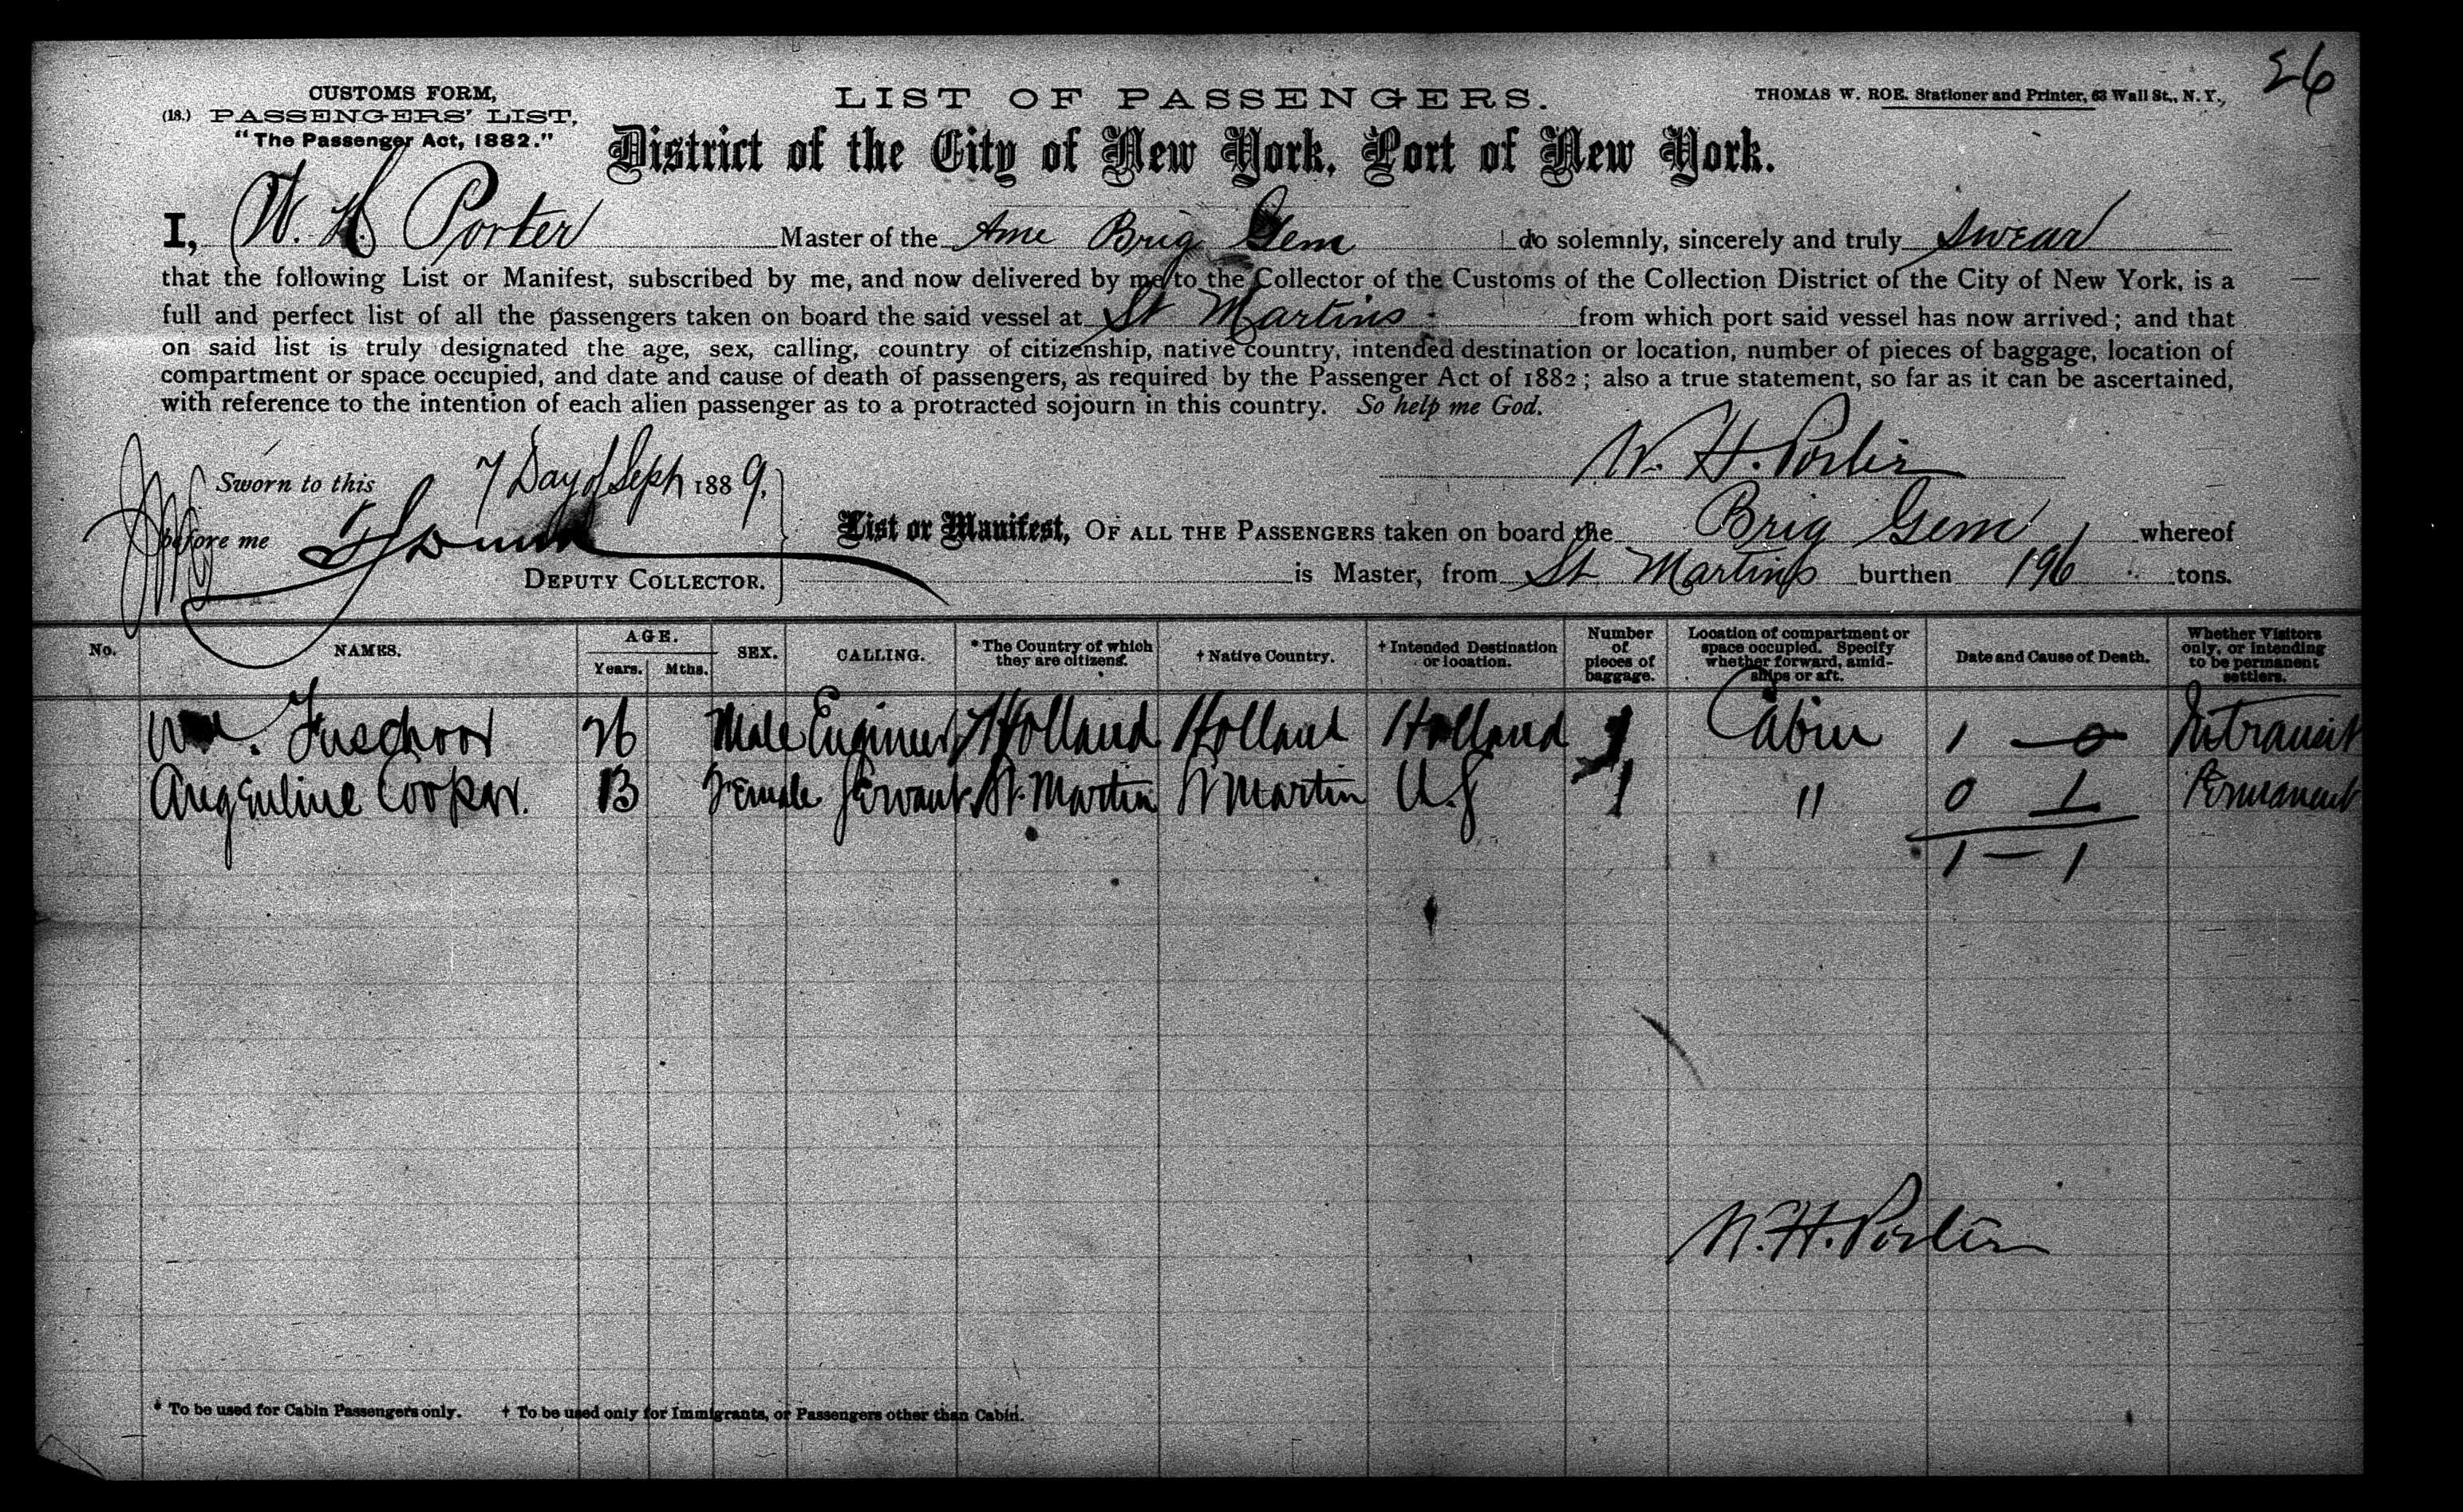 26
CUSTOMS FORM,
(18.) PASSENGERS' LIST,
"The Passenger Act, 1882."
LIST OF PASSENGERS.
THOMAS W. ROE. Stationer and Printer, 63 Wall St., N. Y.,
District of the City of New York, Port of New York.
I, W. H. Porter Master of the Ame Brig Gem do solemnly, sincerely and truly swear
that the following List or Manifest, subscribed by me, and now delivered by me to the Collector of the Customs of the Collection District of the City of New York, is a
full and perfect list of all the passengers taken on board the said vessel at St Martins from which port said vessel has now arrived; and that
on said list is truly designated the age, sex, calling, country of citizenship, native country, intended destination or location, number of pieces of baggage, location of
compartment or space occupied, and date and cause of death of passengers, as required by the Passenger Act of 1882; also a true statement, so far as it can be ascertained,
with reference to the intention of each alien passenger as to a protracted sojourn in this country. So help me God.
W. H. Porter
Sworn to this 7 Day of Sept 1889.
before me
DEPUTY COLLECTOR.
List or Manifest, OF ALL THE PASSENGERS taken on board the Brig Gem whereof
is Master, from St Martins burthen 196 tons.
No. NAMES. AGE. Years. Mths. SEX. CALLING. * The Country of which they are citizens. † Native Country. † Intended Destination or location. Number of pieces of baggage. Location of compartment or space occupied. Specify whether forward, amidships or aft. Date and Cause of Death. Whether Visitors only, or intending to be permanent settlers.
Wm. 26 Male Engineer Holland Holland Holland 1 Cabin 1 — 0 Intransit
Angenline Cooper. 13 Female Servant St. Martin St Martin U.S 1 " 0 1 Permanent
1 — 1
W. H. Porter
* To be used for Cabin Passengers only. † To be used only for Immigrants, or Passengers other than Cabin.